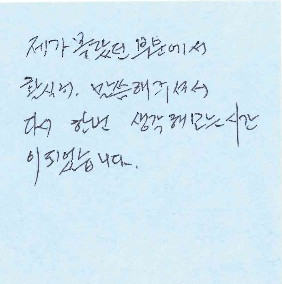 제가 몰랐던 부분에서
말씀해주셔서
다시 한번 생각해보는 시간
이 되었습니다.